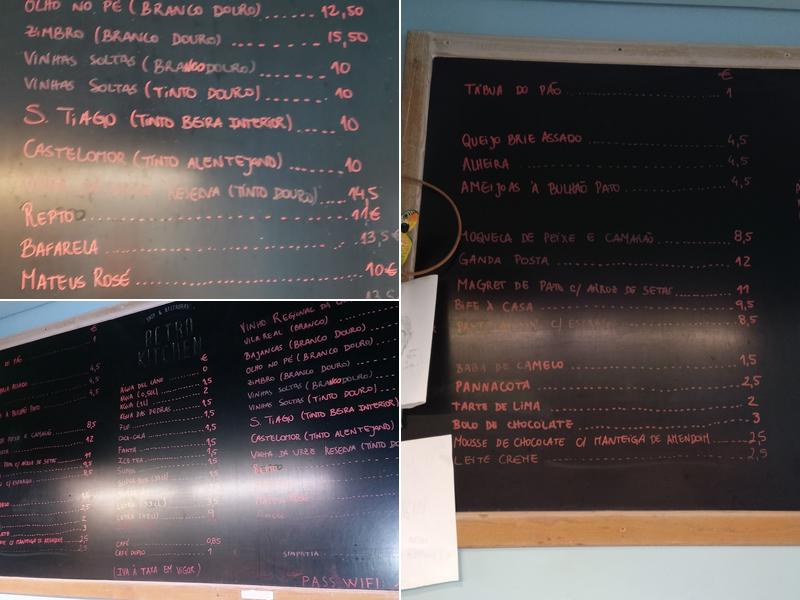 OLHO NO PÉ (BRANCO DOURO) ........ 12,50
ZIMBRO (BRANCO DOURO) ........ 15,50
VINHAS SOLTAS (BRANCO DOURO) ........ 10
VINHAS SOLTAS (TINTO DOURO) ........ 10
S. TIAGO (TINTO BEIRA INTERIOR) ........ 10
CASTELOMOR (TINTO ALENTEJANO) ........ 10
RESERVA (TINTO DOURO) ........ 14,5
REPTO ........ 11€
BAFARELA ........ 13,5€
MATEUS ROSÉ ........ 10€
€
TÁBUA DO PÃO ........ 1
QUEIJO BRIE ASSADO ........ 4,5
ALHEIRA ........ 4,5
AMEIJOAS À BULHÃO PATO ........ 4,5
MOQUECA DE PEIXE E CAMARÃO ........ 8,5
GANDA POSTA ........ 12
MAGRET DE PATO C/ ARROZ DE SETAS ........ 11
BIFE À CASA ........ 9,5
8,5
BABA DE CAMELO ........ 1,5
PANNACOTA ........ 2,5
TARTE DE LIMA ........ 2
BOLO DE CHOCOLATE ........ 3
MOUSSE DE CHOCOLATE C/ MANTEIGA DE AMENDOIM ........ 2,5
LEITE CREME ........ 2,5
PETRA
KITCHEN
€
ÁGUA DEL CANO ........ 0
ÁGUA (0,5L) ........ 1,5
ÁGUA (1L) ........ 2
ÁGUA DAS PEDRAS ........ 1,5
COCA-COLA ........ 1,5
FANTA ........ 1,5
ICE TEA ........ 1,5
CAFÉ ........ 0,85
CAFÉ DUPLO ........ 1
(IVA À TAXA EM VIGOR)
VINHO REGIONAL DA
VILA REAL (BRANCO)
BAJANCAS (BRANCO DOURO)
OLHO NO PÉ (BRANCO DOURO)
ZIMBRO (BRANCO DOURO)
VINHAS SOLTAS (BRANCO DOURO)
VINHAS SOLTAS (TINTO DOURO)
S. TIAGO (TINTO BEIRA INTERIOR)
CASTELOMOR (TINTO ALENTEJANO)
VINHA DA URZE RESERVA (TINTO DO
REPTO
SIMPATIA
PASS WIFI: